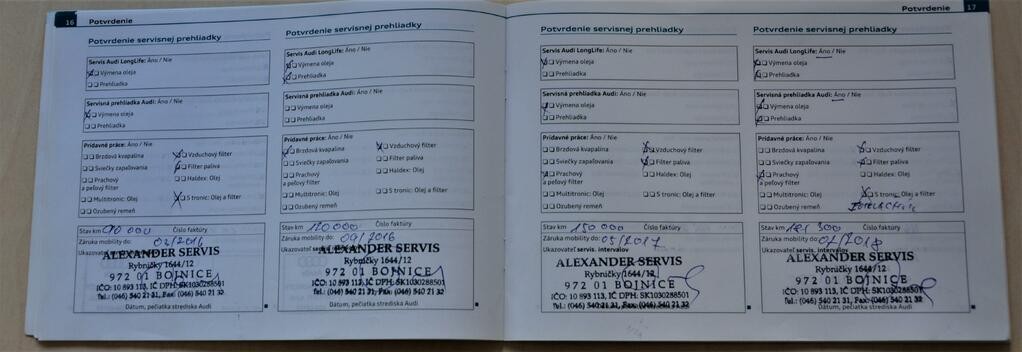 16 Potvrdenie
Potvrdenie servisnej prehliadky
Servis Audi LongLife: Áno / Nie
Výmena oleja
Prehliadka
Servisná prehliadka Audi: Áno / Nie
Výmena oleja
Prehliadka
Prídavné práce: Áno / Nie
Brzdová kvapalina
Vzduchový filter
Sviečky zapaľovania
Filter paliva
Prachový
a peľový filter
Haldex: Olej
Multitronic: Olej
S tronic: Olej a filter
Ozubený remeň
Stav km 90 000 Číslo faktúry
Záruka mobility do: 02/2016
Ukazovateľ servis. intervalov
ALEXANDER SERVIS
Rybníčky 1644/12
972 01 BOJNICE
IČO: 10 893 113, IČ DPH: SK1030288501
Tel.: (046) 540 21 31, Fax: (046) 540 21 32
Dátum, pečiatka strediska Audi
Potvrdenie servisnej prehliadky
Servis Audi LongLife: Áno / Nie
Výmena oleja
Prehliadka
Servisná prehliadka Audi: Áno / Nie
Výmena oleja
Prehliadka
Prídavné práce: Áno / Nie
Brzdová kvapalina
Vzduchový filter
Sviečky zapaľovania
Filter paliva
Prachový
a peľový filter
Haldex: Olej
Multitronic: Olej
S tronic: Olej a filter
Ozubený remeň
Stav km 120 000 Číslo faktúry
Záruka mobility do: 09/2016
Ukazovateľ
ALEXANDER SERVIS
Rybníčky 1644/12
972 01 BOJNICE
IČO: 10 893 113, IČ DPH: SK1030288501
Tel.: (046) 540 21 31, Fax: (046) 540 21 32
Dátum, pečiatka strediska Audi
Potvrdenie 17
Potvrdenie servisnej prehliadky
Servis Audi LongLife: Áno / Nie
Výmena oleja
Prehliadka
Servisná prehliadka Audi: Áno / Nie
Výmena oleja
Prehliadka
Prídavné práce: Áno / Nie
Brzdová kvapalina
Vzduchový filter
Sviečky zapaľovania
Filter paliva
Prachový
a peľový filter
Haldex: Olej
Multitronic: Olej
S tronic: Olej a filter
Ozubený remeň
Stav km 150 000 Číslo faktúry
Záruka mobility do: 05/2017
Ukazovateľ servis. intervalov
ALEXANDER SERVIS
Rybníčky 1644/12
972 01 BOJNICE
IČO: 10 893 113, IČ DPH: SK1030288501
Tel.: (046) 540 21 31, Fax: (046) 540 21 32
Dátum, pečiatka strediska Audi
Potvrdenie servisnej prehliadky
Servis Audi LongLife: Áno / Nie
Výmena oleja
Prehliadka
Servisná prehliadka Audi: Áno / Nie
Výmena oleja
Prehliadka
Prídavné práce: Áno / Nie
Brzdová kvapalina
Vzduchový filter
Sviečky zapaľovania
Filter paliva
Prachový
a peľový filter
Haldex: Olej
Multitronic: Olej
S tronic: Olej a filter
Ozubený remeň
Stav km 181 300 Číslo faktúry
Záruka mobility do: 02/2018
Ukazovateľ servis. intervalov
ALEXANDER SERVIS
Rybníčky 1644/12
972 01 BOJNICE
IČO: 10 893 113, IČ DPH: SK1030288501
Tel.: (046) 540 21 31, Fax: (046) 540 21 32
Dátum, pečiatka strediska Audi